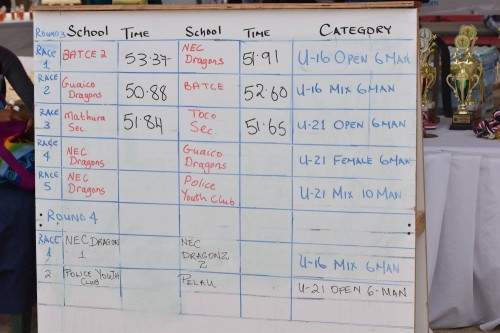 ROUND 3 SCHOOL TIME SCHOOL TIME CATEGORY
RACE 1 BATCE 2 53.37 NEC Dragons 51.91 U-16 OPEN 6 MAN
RACE 2 Guaico Dragons 50.88 BATCE 52.60 U-16 MIX 6 MAN
RACE 3 Mathura Sec. 51.84 Toco Sec. 51.65 U-21 OPEN 6 MAN
RACE 4 NEC Dragons Guaico Dragons U-21 FEMALE 6 MAN
RACE 5 NEC Dragons Police Youth Club U-21 MIX 10 MAN
ROUND 4
RACE 1 NEC DRAGON 1 NEC DRAGONZ 2 U-16 MIX 6 MAN
2 POLICE YOUTH CLUB PELAU U-21 OPEN 6-MAN